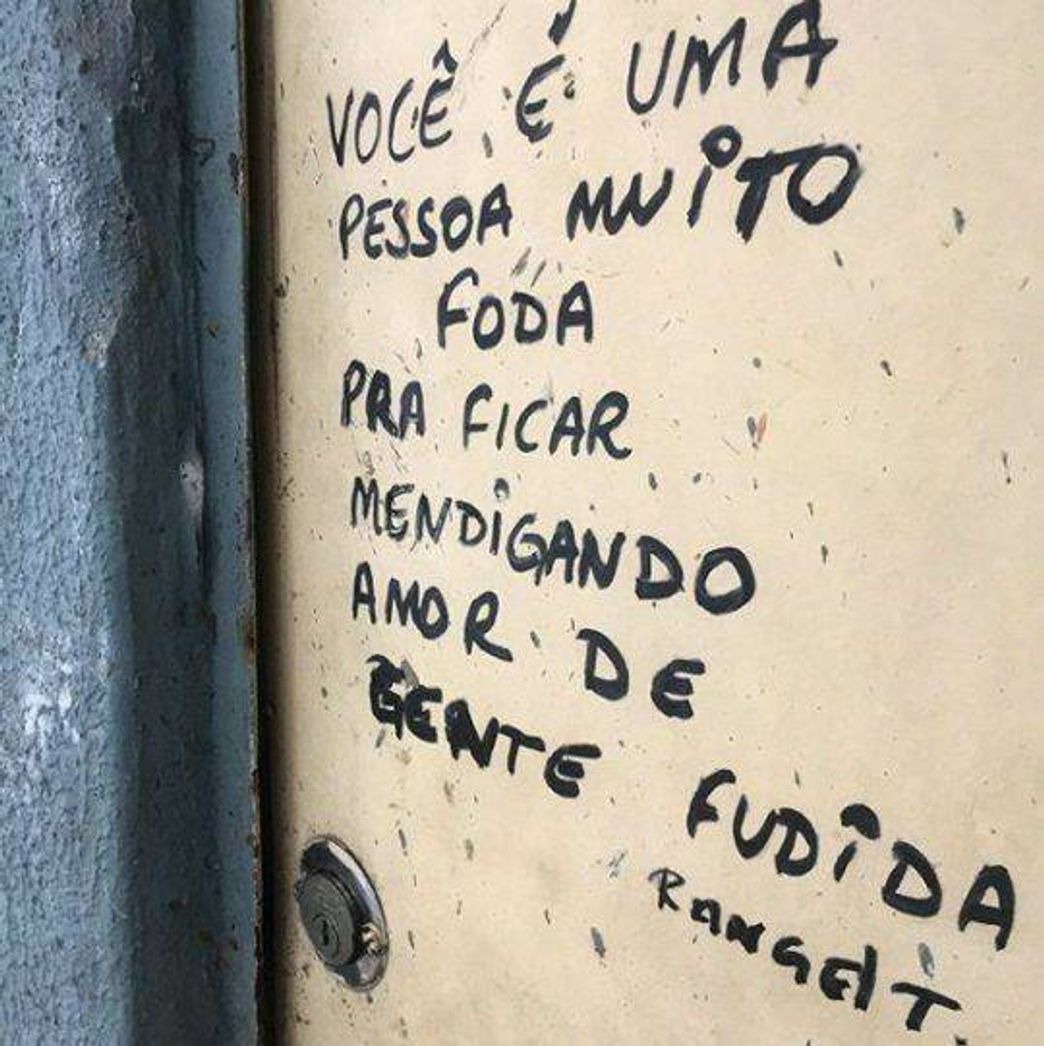 VOCÊ É UMA
PESSOA MUiTO
FODA
PRA FICAR
MENDiGANDO
AMOR DE
GENTE FUDiDA
RANGEl T.